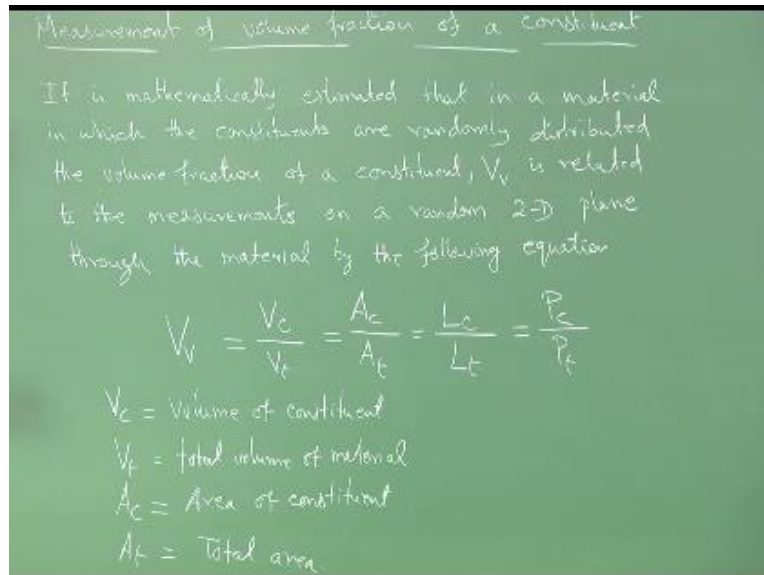 Measurement of volume fraction of a constituent
It is mathematically estimated that in a material
in which the constituents are randomly distributed
the volume fraction of a constituent, V_v is related
to the measurements on a random 2-D plane
through the material by the following equation
V_v = V_c/V_t = A_c/A_t = L_c/L_t = P_c/P_t
V_c = Volume of constituent
V_t = total volume of material
A_c = Area of constituent
A_t = Total area